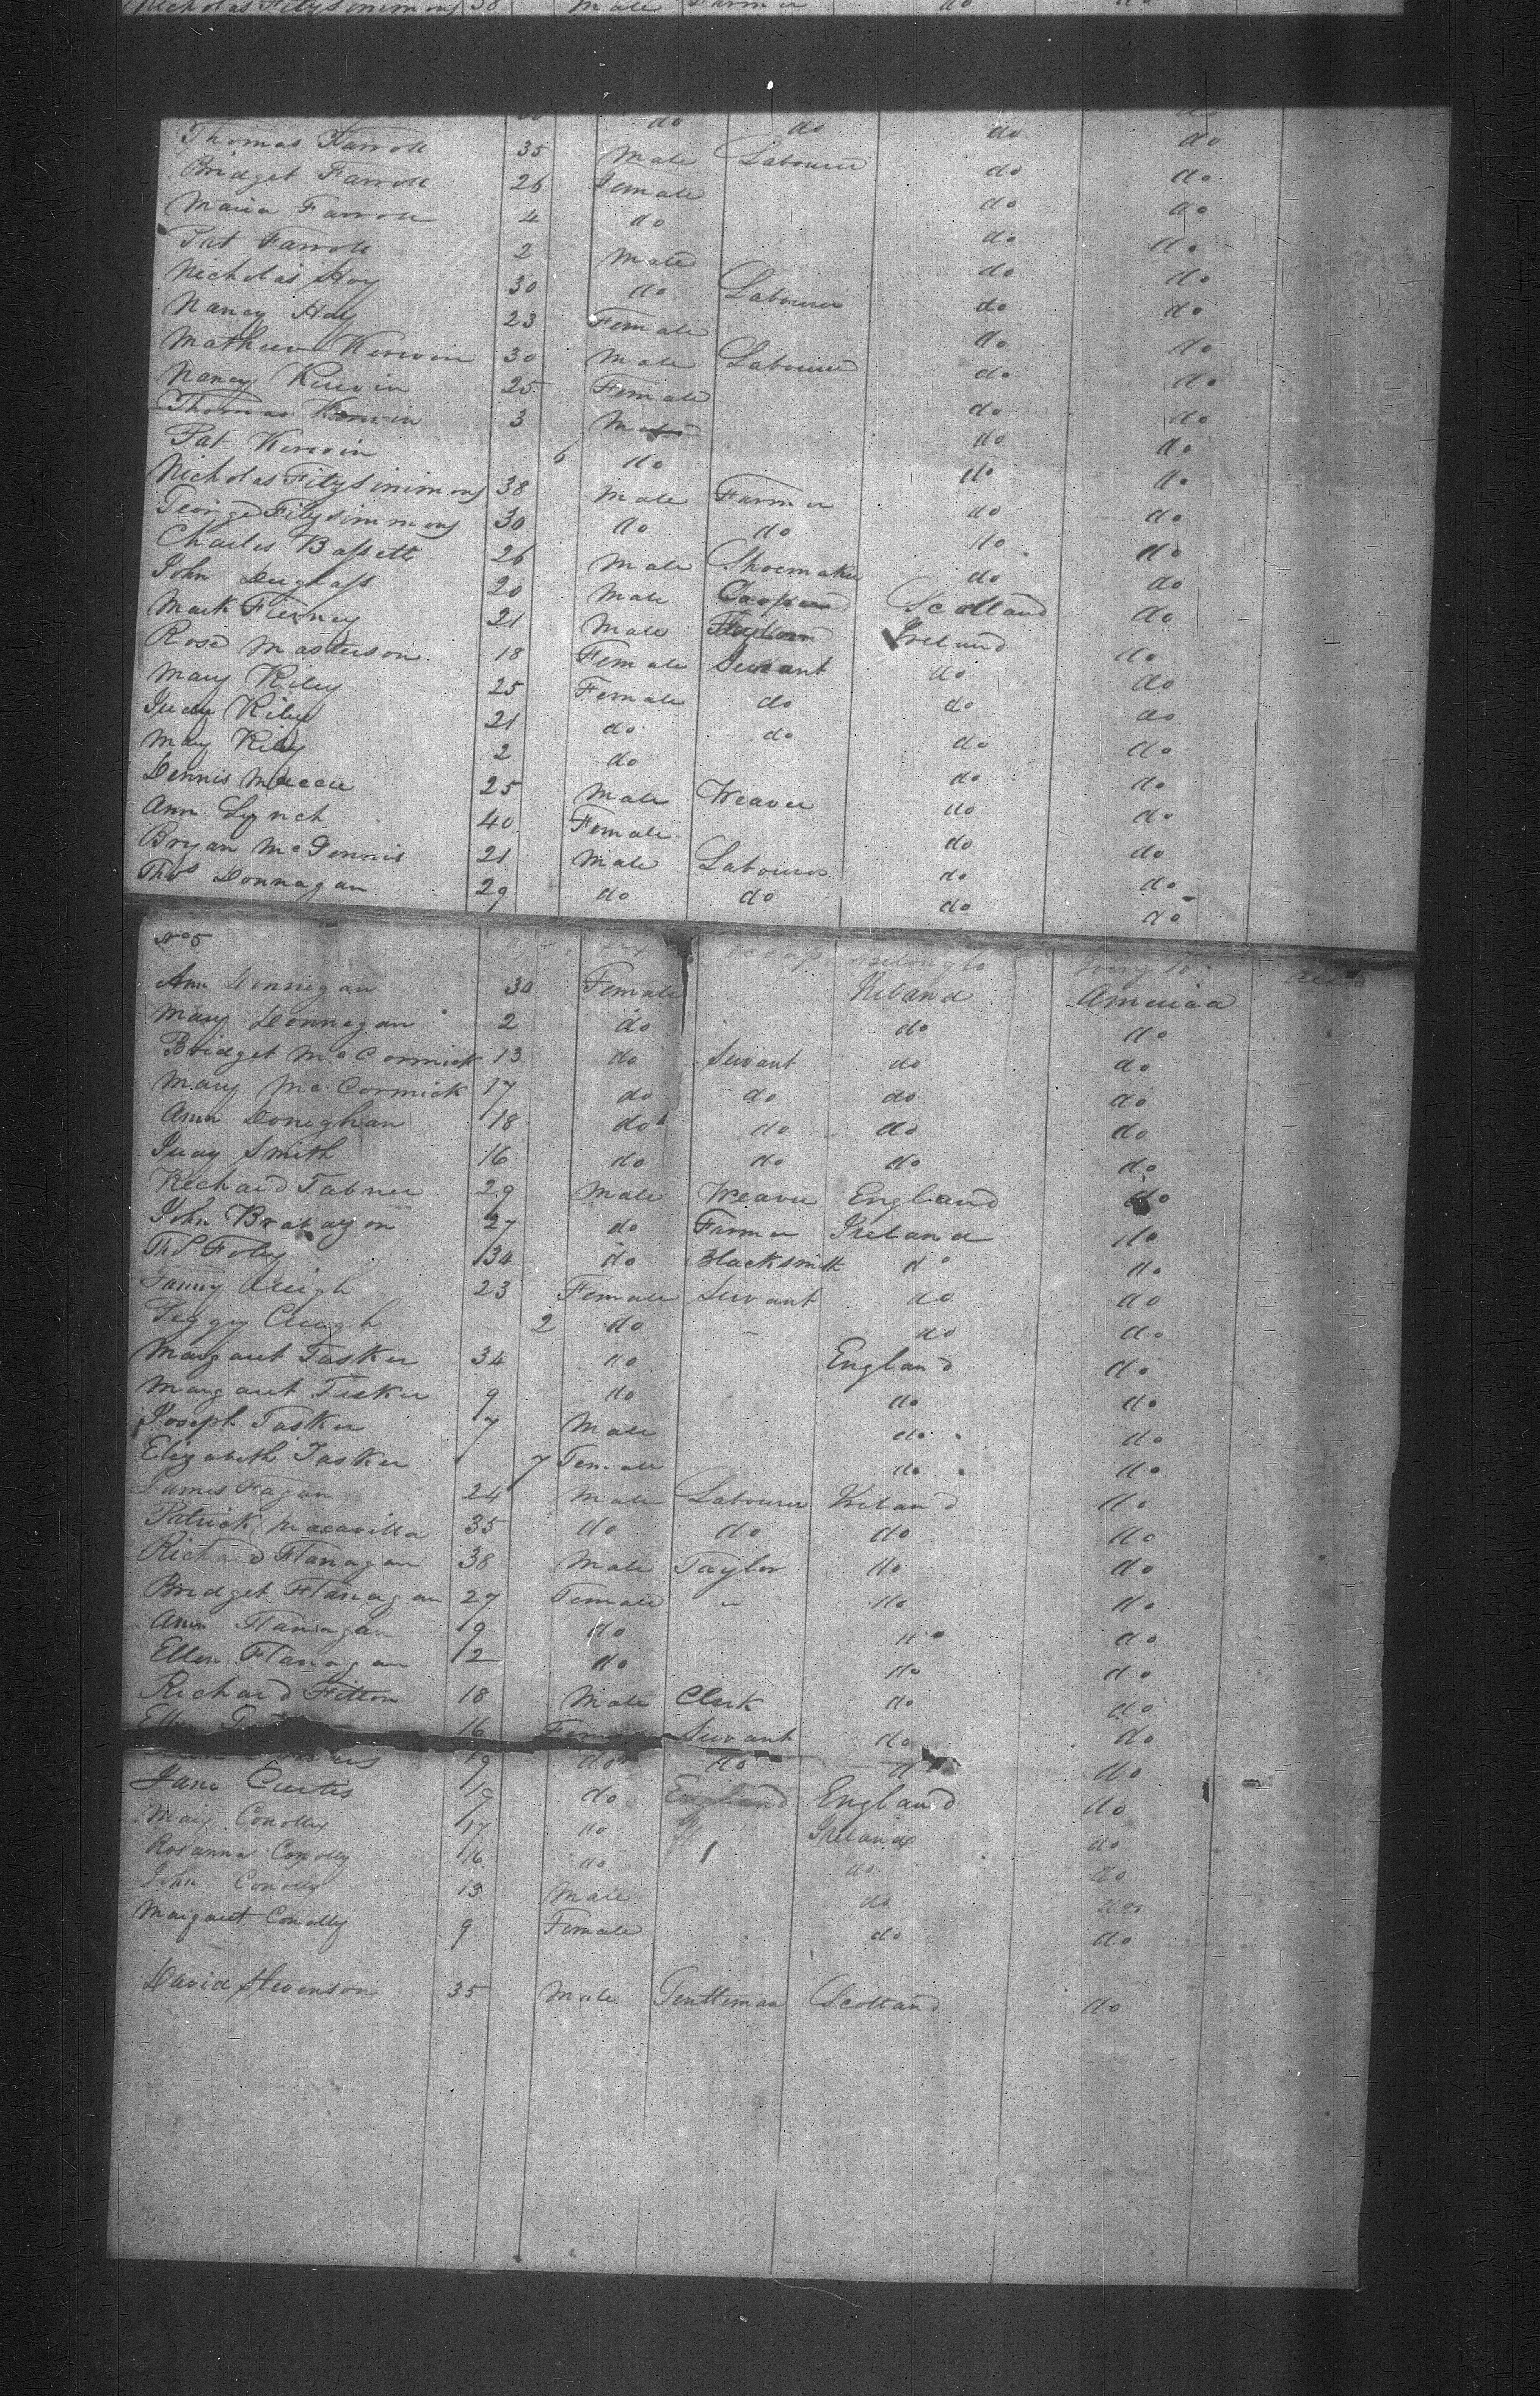 Nicholas Fitzsimmons 38 Male Farmer do do
do do do do
Thomas Farroll 35 Male Labourer do do
Bridget Farroll 26 Female do do
Maria Farroll 4 do do do
Pat Farroll 2 Male do do
Nicholas Hoy 30 do Labourer do do
Nancy Hoy 23 Female do do
Mathew Kerwin 30 Male Labourer do do
Nancy Kerwin 25 Female do do
Thomas Kerwin 3 Male do do
Pat Kerwin 6 do do do
Nicholas Fitzsimmons 38 Male Farmer do do
George Fitzsimmons 30 do do do do
Charles Bassett 26 Male Shoemaker do do
John Duglass 20 Male Scotland do
Mark Fierney 21 Male Ireland do
Rose Masterson 18 Female Servant do do
Mary Riley 25 Female do do do
Judy Riley 21 do do do do
Mary Riley 2 do do do
Dennis 25 Male Weaver do do
Ann Lynch 40 Female do do
Bryan McGennis 21 Male Labourer do do
Thos Donnagan 29 do do do do
No 5 age sex occup belong to going to
Ann Donnegan 30 Female Ireland America
Mary Donnagan 2 do do do
Bridget McCormick 13 do Servant do do
Mary McCormick 17 do do do do
Ann Doneghan 18 do do do do
Judy Smith 16 do do do do
Richard Tabner 29 Male Weaver England do
John Brabazon 27 do Farmer Ireland do
Ths Foley 34 do Blacksmith do do
Fanny Creigh 23 Female Servant do do
Peggy Creagh 2 do - do do
Margaret Tasker 34 do England do
Margaret Tasker 9 do do do
Joseph Tasker 7 Male do do
Elizabeth Tasker 7 Female do do
James Fagan 24 Male Labourer Ireland do
Patrick Macavilla 35 do do do do
Richard Flanagan 38 Male Taylor do do
Bridget Flanagan 27 Female " do do
Ann Flanagan 9 do do do
Ellen Flanagan 12 do do do
Richard Fitton 18 Male Clerk do do
Ellen 16 Female Servant do do
19 do do do do
Jane Curtis 19 do England England do
Mary Conolly 17 do Ireland do
Rosanna Conolly 16 do do do
John Conolly 13 Male do do
Margaret Conolly 9 Female do do
David Stevenson 35 Male Gentleman Scotland do